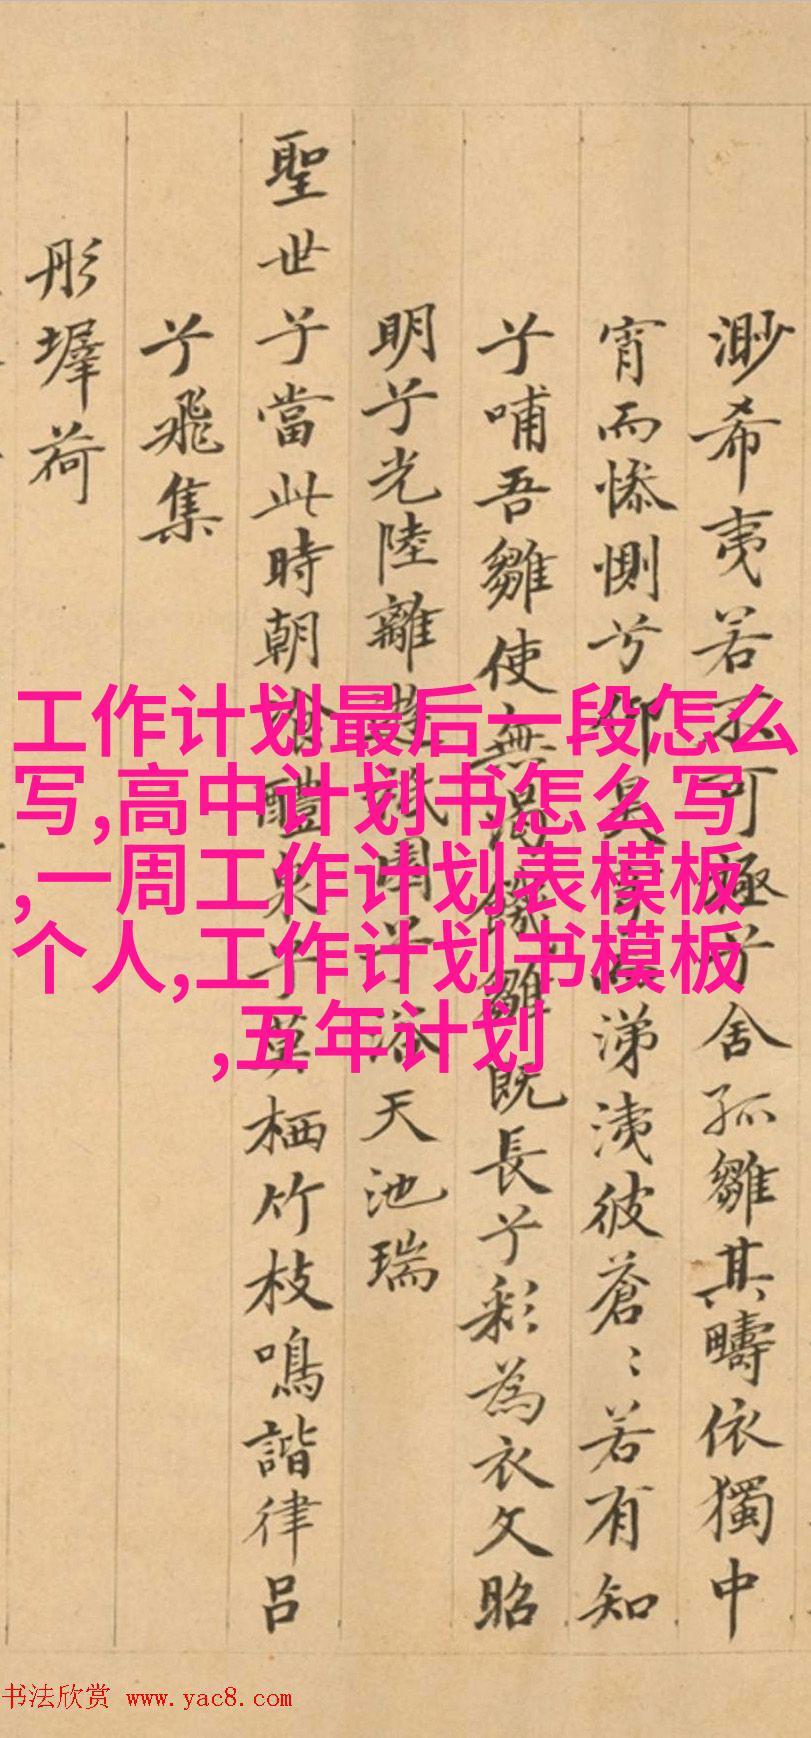 渺希夷若不可極兮舍孤雛其疇依獨中
宵而悽惻兮仰昊穹以涕洟彼蒼〻若有知
兮哺吾雛使無渴饑雛既長兮彩為衣文昭
明兮光陸離
兮浴天池瑞
聖世兮當此時朝
醴泉兮莫栖竹枝鳴諧律呂
兮飛集
彤墀荷
工作计划最后一段怎么
写,高中计划书怎么写
,一周工作计划表模板
个人,工作计划书模板
,五年计划
书法欣赏 www.yac8.com